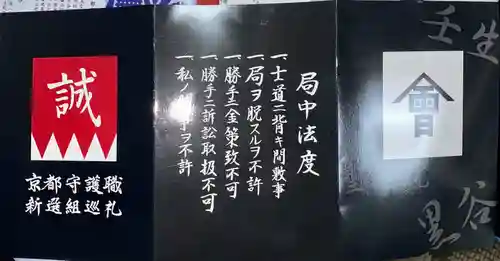 壬生
會
黒谷
局中法度
一、士道ニ背キ間敷事
一、局ヲ脱スルヲ不許
一、勝手ニ金策致不可
一、勝手ニ訴訟取扱不可
一、私ノ ヲ不許
誠
京都守護職
新選組巡礼